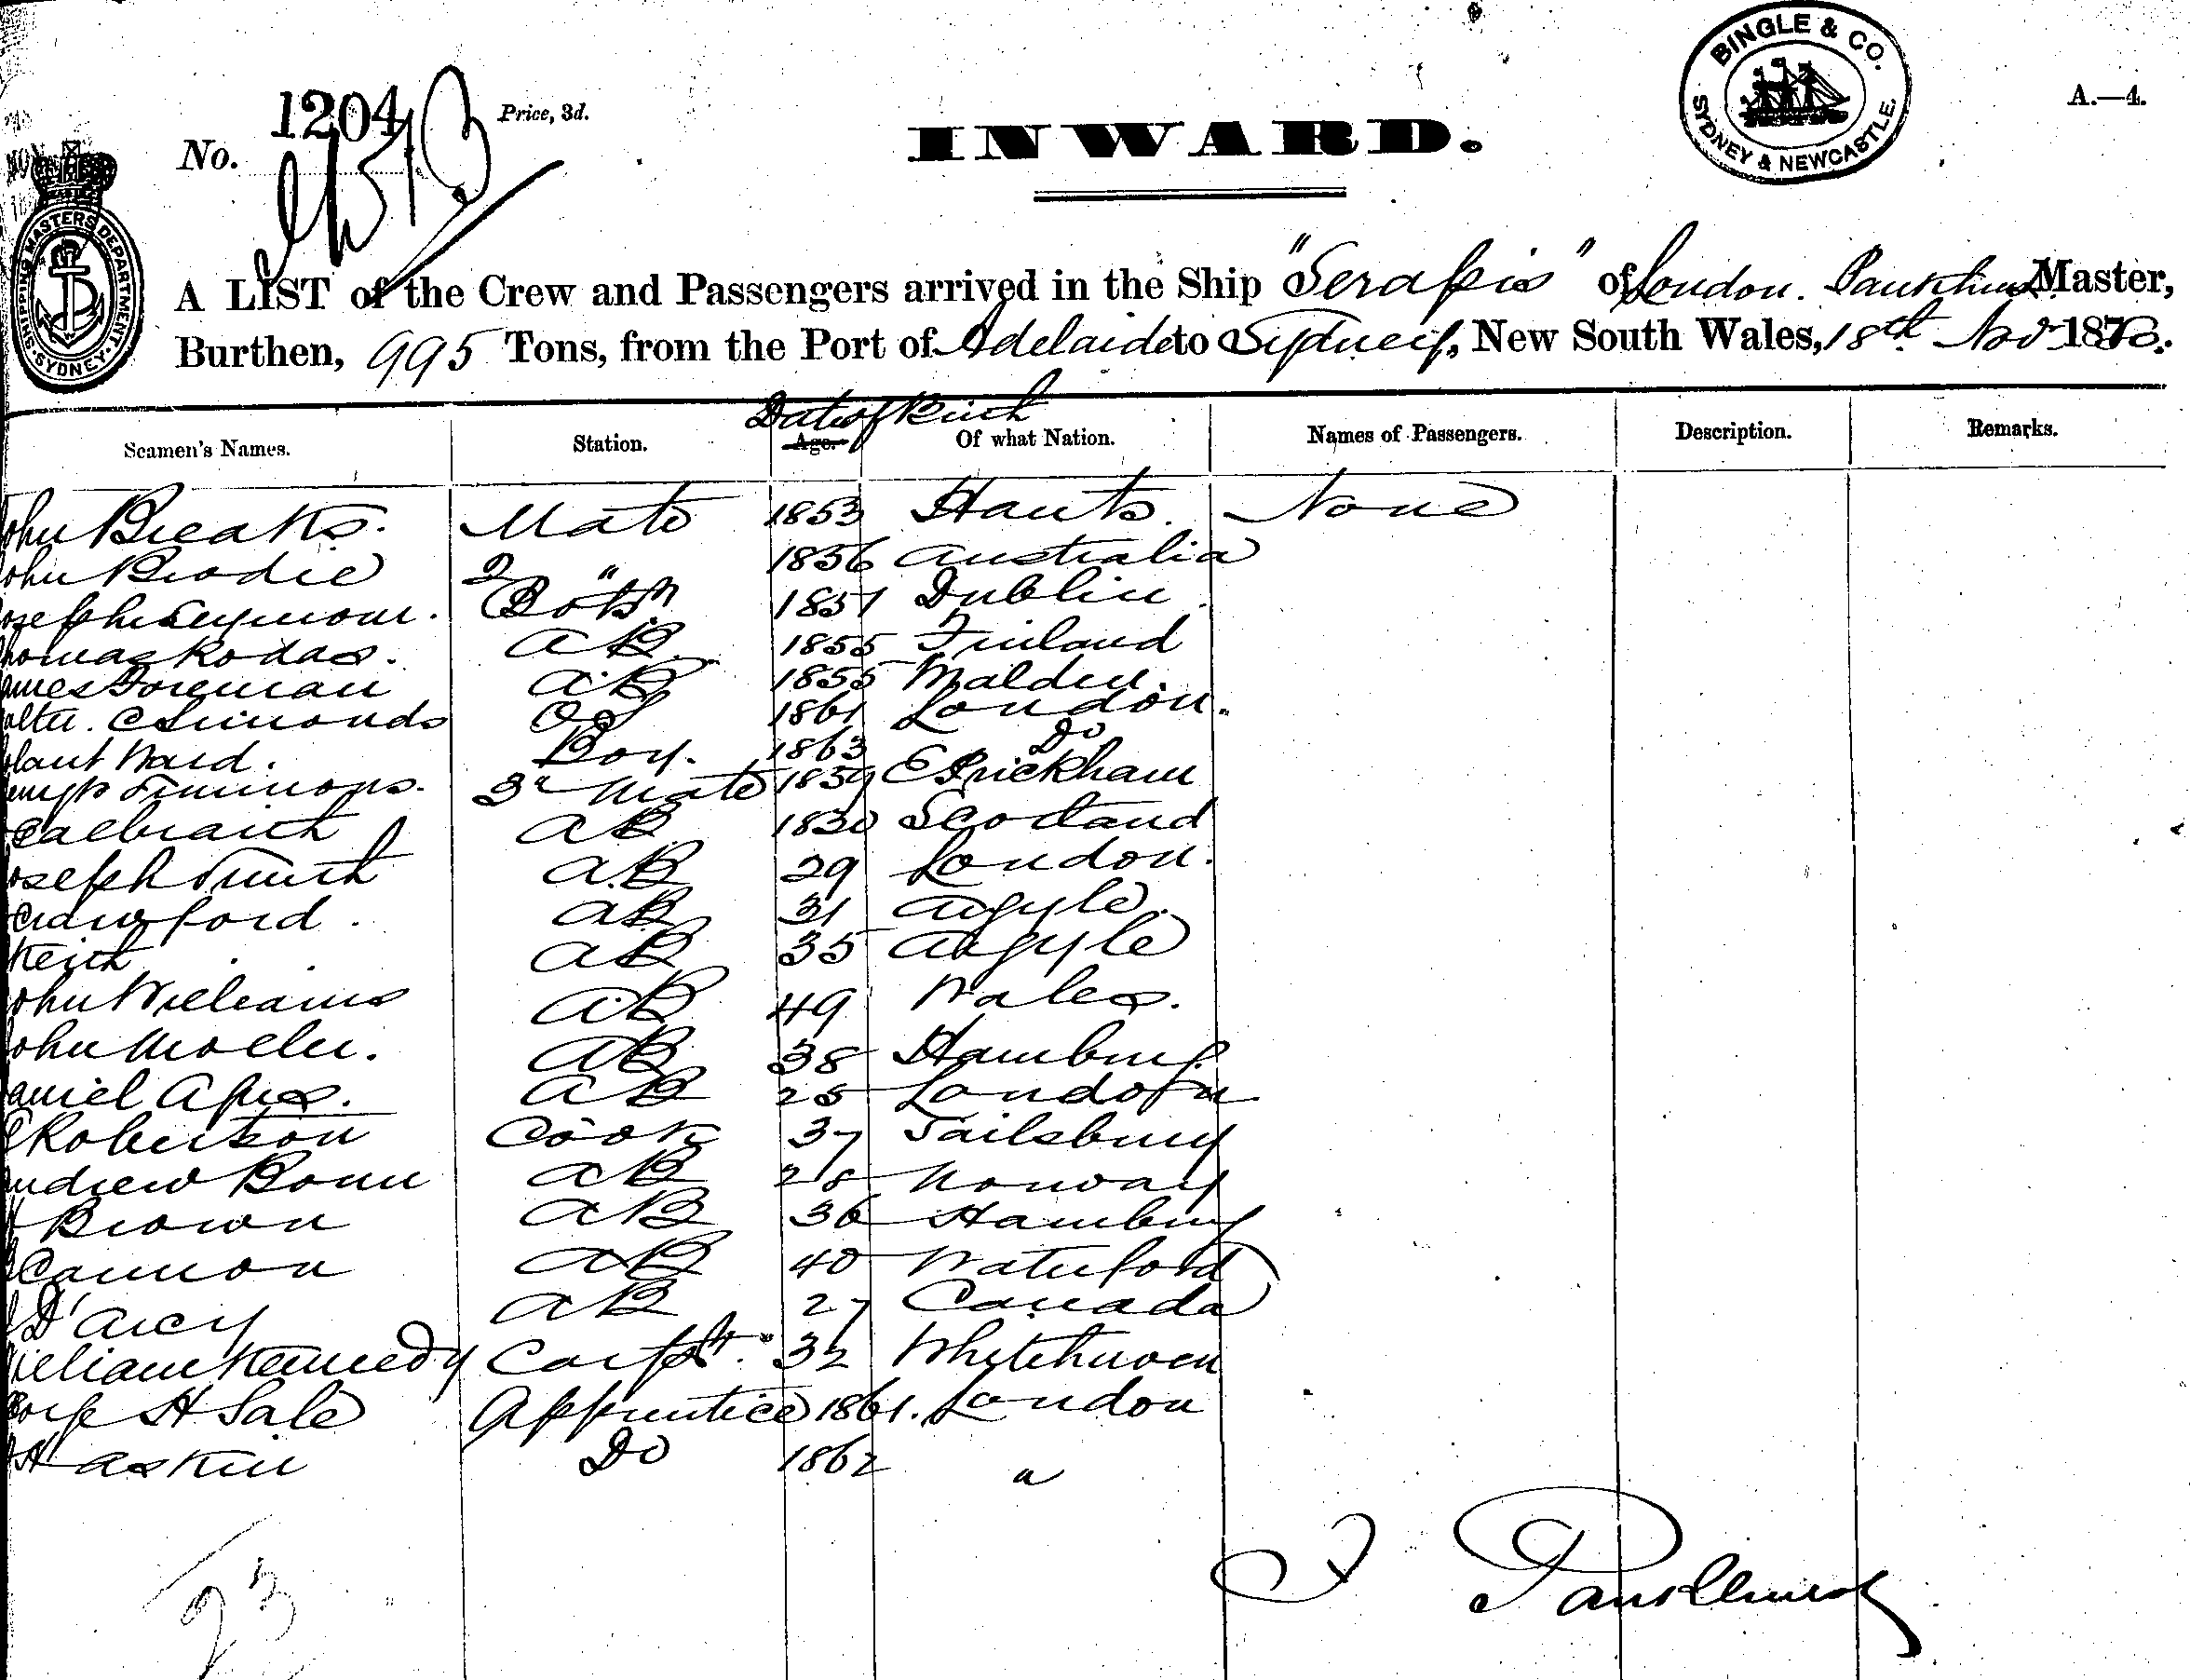 BINGLE & CO.
SYDNEY & NEWCASTLE.
A.—4.
No. 1204
Price, 3d.
INWARD.
SHIPPING MASTERS DEPARTMENT. SYDNEY.
A LIST of the Crew and Passengers arrived in the Ship "Serapis" of London. Master,
Burthen, 995 Tons, from the Port of Adelaide to Sydney, New South Wales, 18th Nov 187
Date of Birth
Seamen's Names. Station. Age. Of what Nation. Names of Passengers. Description. Remarks.
ohn Breaks. Mate 1853 Hants. None
ohn Brodie 2 " 1856 Australia
oseph Seymour. Botsn 1851 Dublin.
homas Rodas. AB. 1855 Finland
ames Foreman A.B 1855 Malden.
alter. C Simonds OS 1861 London.
Ward. Boy. 1863 Do
Simmons. 3rd Mate 1859 Brickham
Galbraith AB 1830 Scotland
oseph Smith A.B 29 London.
Crawford. AB 31 Argyle.
Keith AB 35 Argyle
ohn Williams A.B 49 Wales.
ohn Moller. AB 38 Hamburg.
aniel AB 25 London
Robertson Cook 37 Tailsbury
ndrew Bonn AB 28 Norway
Brown AB 36 Hamburg
Cannon AB 40 Waterford
D'Arcy AB 27 Canada
illiam Kennedy Carptr. 32 Whitehaven
H Sale Apprentice 1861. London
Askin Do 1862 "
23